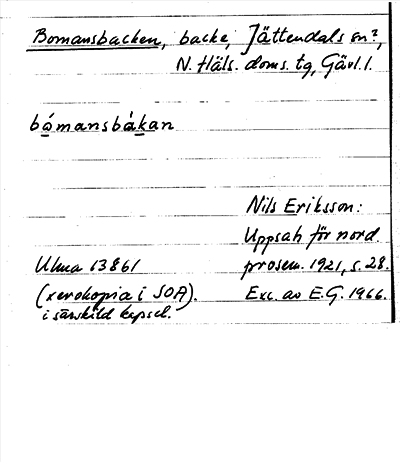 Bomansbacken, backe, Jättendals sn?,
N. Häls. doms. tg, Gävl. l.
bómansbákan
Nils Eriksson:
Uppsats för nord.
Ulma 13861 prosem. 1921, s. 28.
(xerokopia i SOA). Exc. av E.G. 1966.
i särskild kapsel.